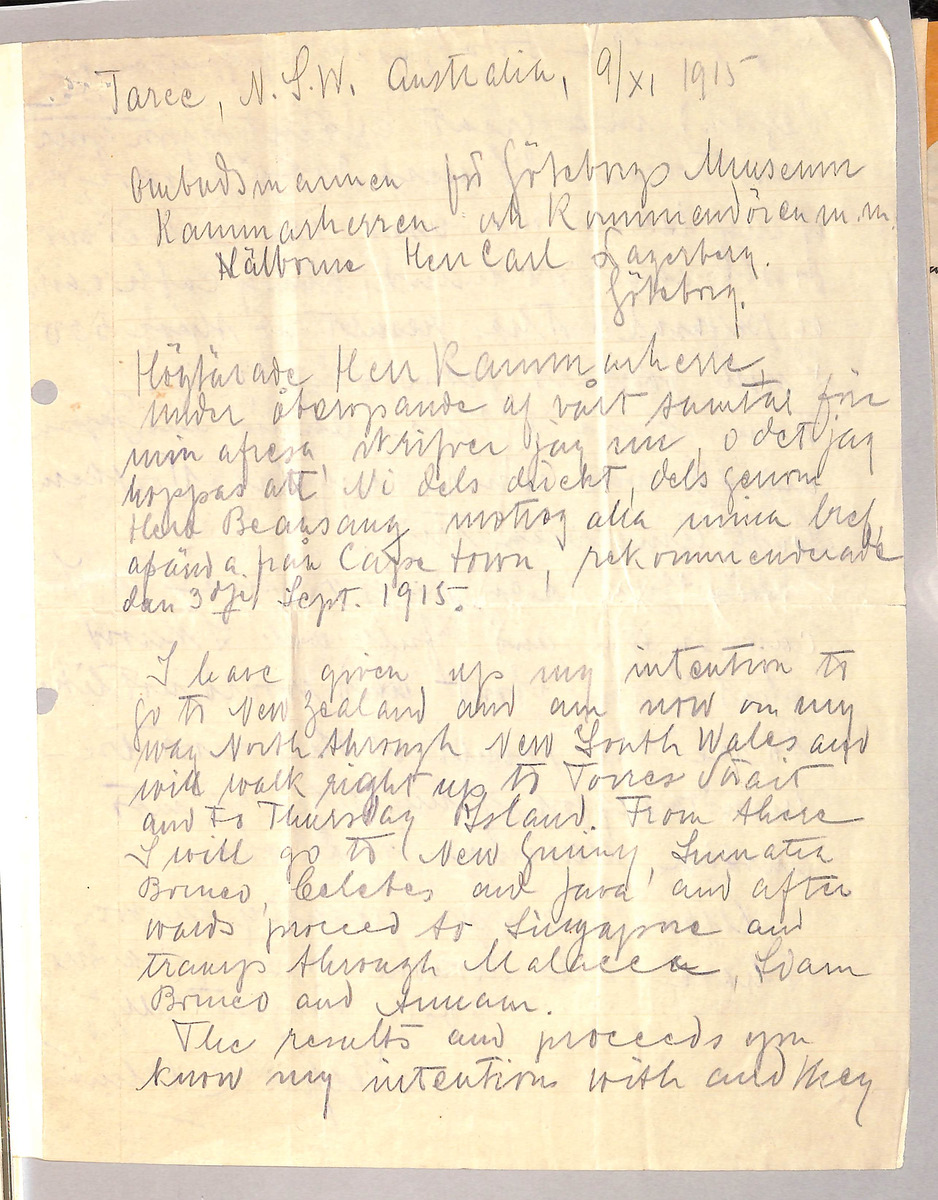 Taree, N.S.W. Australia, 9/XI 1915
Ombudsmannen för Göteborgs Museum
Kammarherren och Kommendören m.m.
Välborne Herr Carl Lagerberg.
Göteborg.
Högtärade Herr Kammarherre,
under åberopande af vårt samtal före
min afresa skrifver jag nu, o det jag
hoppas att Ni dels direkt, dels genom
Herr Beausang mottog alla mina bref,
afsända från Cape town, rekommenderade
den 3dje Sept. 1915.
I have given up my intention to
go to New Zealand and am now on my
way North through New South Wales and
will walk right up to Torres Strait
and to Thursday Island. From there
I will go to New Guiny, Sumatra
Borneo, Celebes and Java and after
wards proceed to Singapore and
tramp through Malacca, Siam
Borneo and Annam.
The results and proceeds you
know my intentions with and they